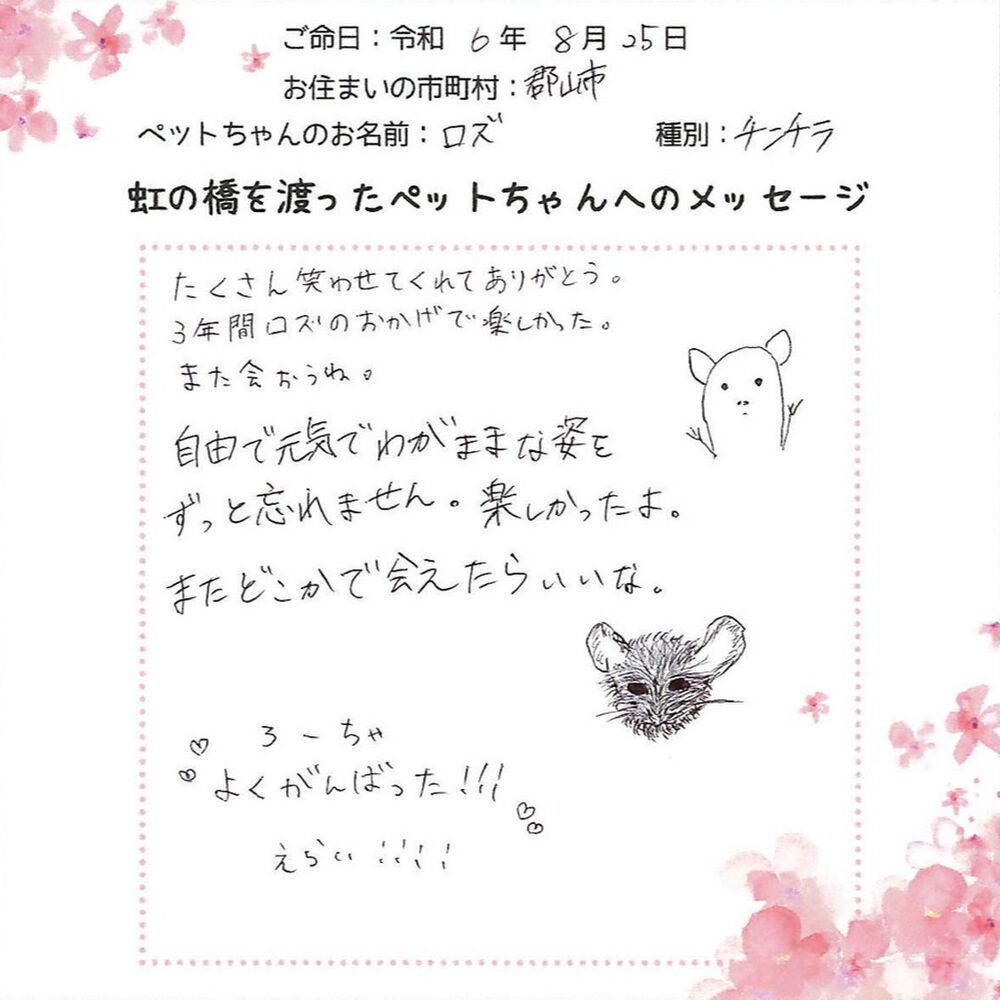 ご命日：令和 6年 8月 25日
お住まいの市町村：郡山市
ペットちゃんのお名前：ロズ 種別：チンチラ
虹の橋を渡ったペットちゃんへのメッセージ
たくさん笑わせてくれてありがとう。
3年間ロズのおかげで楽しかった。
また会おうね。
自由で元気でわがままな姿を
ずっと忘れません。楽しかったよ。
またどこかで会えたらいいな。
ろーちゃ
よくがんばった!!!
えらい!!!!